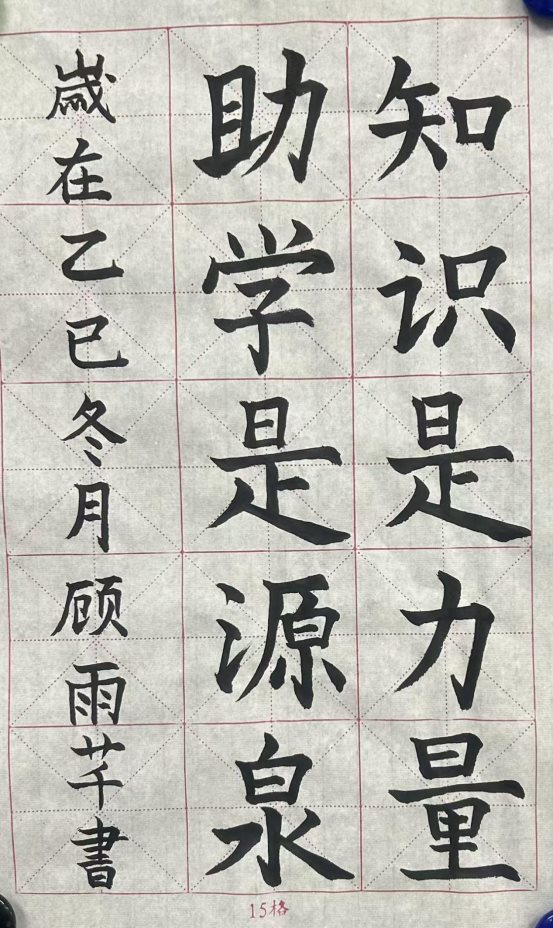 知识是力量
助学是源泉
歲在乙巳冬月顾雨芊書
15格